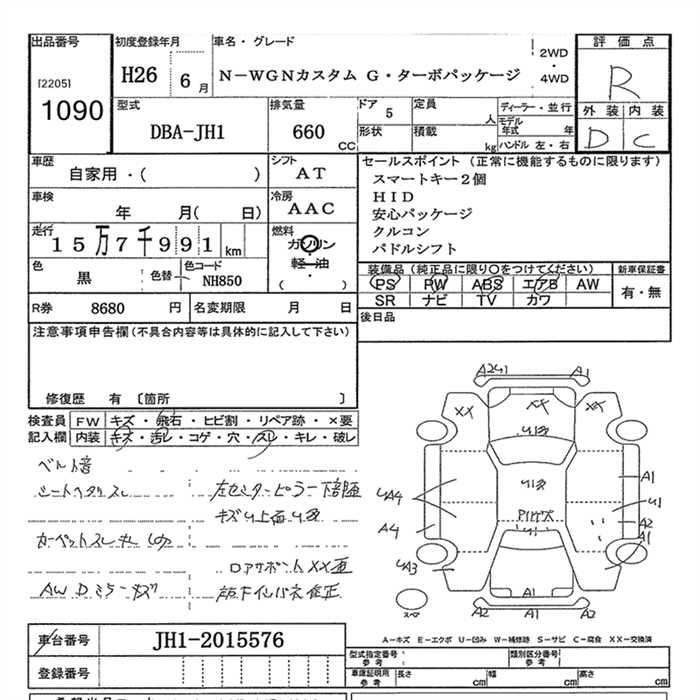 出品番号 初度登録年月 車名・グレード 評価点
[2205] 1090 H26 6月 N-WGNカスタム G・ターボパッケージ 2WD・4WD R
外装 内装
D C
型式 排気量 ドア 定員 ディーラー・並行
DBA-JH1 660CC 5 人 モデル年式 年
形状 積載 kg ハンドル 左・右
車歴 シフト セールスポイント (正常に機能するものに限ります)
自家用・( ) AT スマートキー2個
車検 冷房 HID
年 月( 日) AAC 安心パッケージ
走行 燃料 クルコン
15万7千991km ガソリン・軽油・( ) パドルシフト
色 色替 色コード 装備品(純正品に限り○をつけてください) 新車保証書
黒 NH850 PS PW ABS エアB AW 有・無
SR ナビ TV カワ
R券 8680円 名変期限 月 日 後日品
注意事項申告欄(不具合内容等は具体的に記入して下さい)
修復歴 有 〔箇所 〕
検査員 FW キズ・飛石・ヒビ割・リペア跡・×要
記入欄 内装 キズ・汚レ・コゲ・穴・スレ・キレ・破レ
ベルト音
シートヘタリスレ 左センターピラー下部
キズU上面U多
カーペットスレ
ロアサポートXX
AW Dミラーキズ
A2 U1 A1
XX XX XX
U多
UA4 U多 A1
U1
A4 A2
A1
UA3 A1
A2 A1 A2
スペ
車台番号 JH1-2015576 A-キズ E-エクボ U-凹み W-補修跡 S-サビ C-腐食 XX-交換済
登録番号 型式指定番号 参考 類別区分番号 参考
車庫証明用 参考 長さ cm 幅 cm 高さ cm